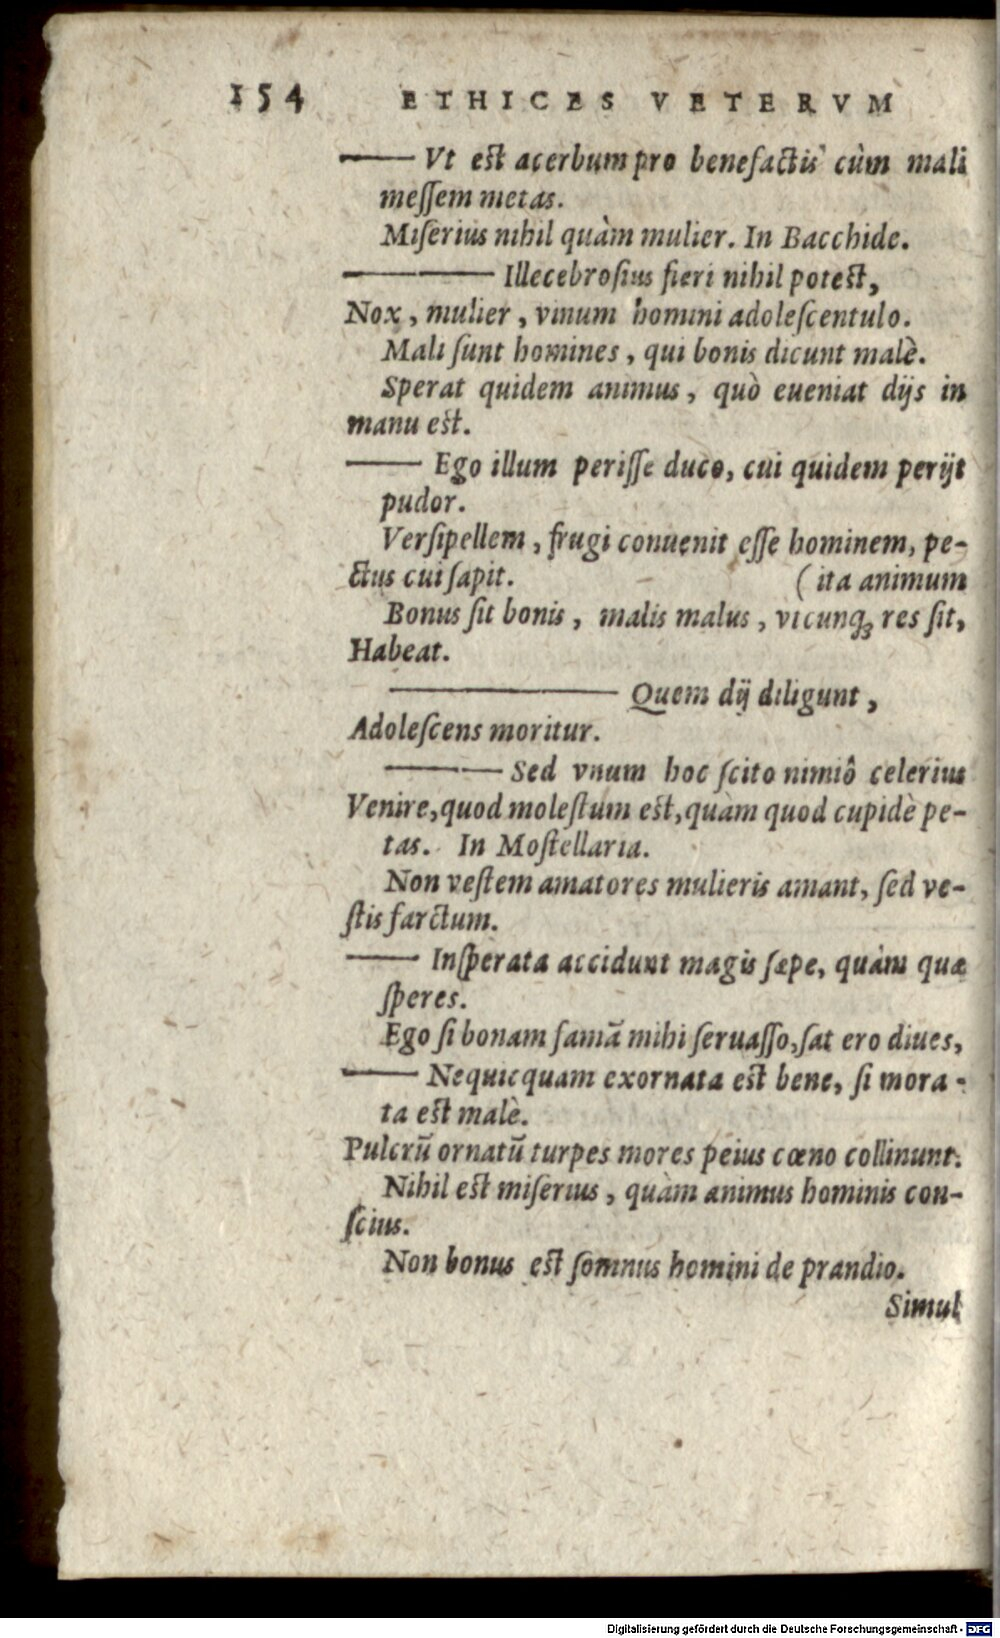 154 ETHICES VETERVM
—— Vt est acerbum pro benefactis cùm mali
meſſem metas.
Miſerius nihil quàm mulier. In Bacchide.
———— Illecebroſius fieri nihil potest,
Nox, mulier, vinum homini adoleſcentulo.
Mali ſunt homines, qui bonis dicunt malè.
Sperat quidem animus, quò eueniat dijs in
manu est.
—— Ego illum periſſe duco, cui quidem perijt
pudor.
Verſipellem, frugi conuenit eſſe hominem, pe-
ctus cui ſapit. (ita animum
Bonus ſit bonis, malis malus, vtcunq; res ſit,
Habeat.
—————— Quem dij diligunt,
Adoleſcens moritur.
——— Sed vnum hoc ſcito nimiô celerius
Venire, quod moleſtum est, quàm quod cupidè pe-
tas. In Moſtellaria.
Non veſtem amatores mulieris amant, ſed ve-
ſtis farctum.
—— Inſperata accidunt magis ſæpe, quàm quæ
ſperes.
Ego ſi bonam famā mihi ſeruaſſo, ſat ero diues,
—— Nequicquam exornata est bene, ſi mora-
ta est malè.
Pulcrū ornatū turpes mores peius cœno collinunt.
Nihil est miſerius, quàm animus hominis con-
ſcius.
Non bonus est ſomnus homini de prandio.
Simul
Digitalisierung gefördert durch die Deutsche Forschungsgemeinschaft - DFG